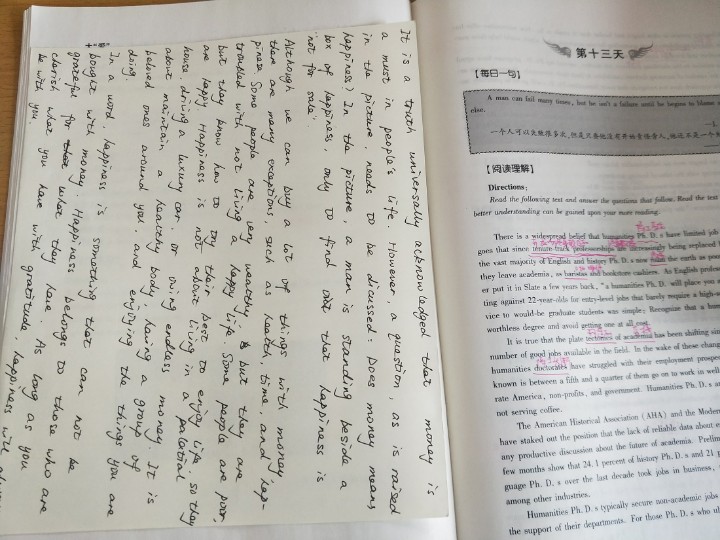 It is a truth universally acknowledged that money is
a must in people's life. However, a question, as is raised
in the picture, needs to be discussed: Does money means
happiness? In the picture, a man is standing beside a
box of happiness, only to find out that happiness is
'not for sale'.
Although we can buy a lot of things with money,
there are many exceptions, such as health, time, and hap-
piness. Some people are very wealthy, but they are
troubled with not living a happy life. Some people are poor,
but they know how to try their best to enjoy life, so they
are happy. Happiness is not about living in a palatial
house, driving a luxury car, or owing endless money. It is
about maintain a healthy body, having a group of
beloved ones around you, and enjoying the things you are
doing.
In a word, happiness is something that can not be
bought with money. Happiness belongs to those who are
grateful for what they have. As long as you
cherish what you have with gratitude, happiness will
be with you.
第十三天
【每日一句】
A man can fail many times, but he isn't a failure until he begins to blame
else.
一个人可以失败很多次,但是只要他没有开始责怪旁人,他还不是一个
【阅读理解】
Directions:
Read the following text and answer the questions that follow. Read the text
better understanding can be gained upon your more reading.
There is a widespread belief that humanities Ph. D. s have limited job
goes that since tenure-track professorships are increasingly being replaced
the vast majority of English and history Ph. D. s now the earth as
they leave academia, as baristas and bookstore cashiers. As English profes
er put it in Slate a few years back, "a humanities Ph. D. will place you
ting against 22-year-olds for entry-level jobs that barely require a high-s
vice to would-be graduate students was simple: Recognize that a human
worthless degree and avoid getting one at all cost.
It is true that the plate tectonics of academia has been shifting sin
number of good jobs available in the field. In the wake of these chang
humanities doctorates have struggled with their employment prospec
known is between a fifth and a quarter of them go on to work in well
rate America, non-profits, and government. Humanities Ph. D. s a
not serving coffee.
The American Historical Association (AHA) and the Moder
have staked out the position that the lack of reliable data about e
any productive discussion about the future of academia. Prelim
few months show that 24. 1 percent of history Ph. D. s and 21 p
guage Ph. D. s over the last decade took jobs in business,
among other industries.
Humanities Ph. D. s typically secure non-academic jobs
the support of their departments. For those Ph. D. s who ul